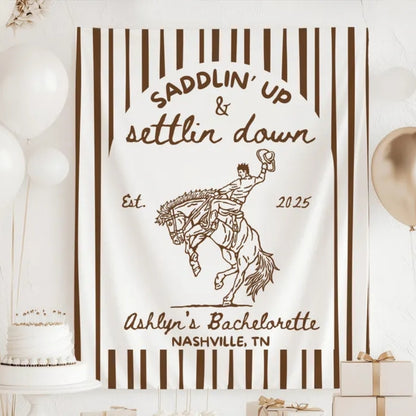 SADDLIN' UP
&
settlin down
Est. 2025
Ashlyn's Bachelorette
NASHVILLE, TN